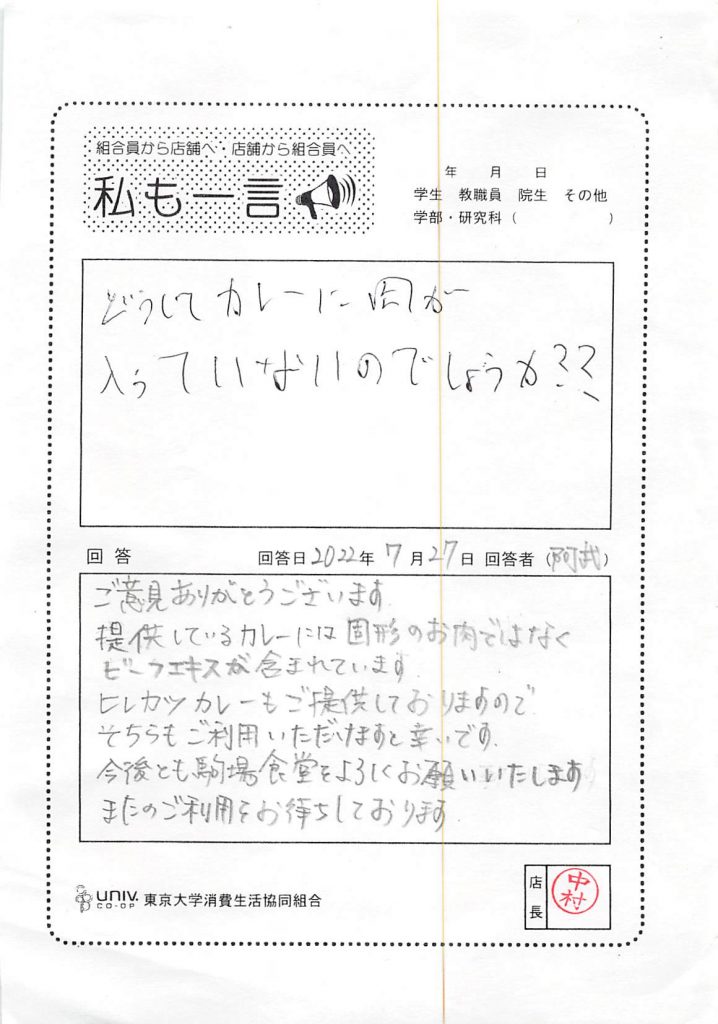 組合員から店舗へ・店舗から組合員へ
私も一言
年 月 日
学生 教職員 院生 その他
学部・研究科（ ）
どうしてカレーに肉が
入っていないのでしょうか??
回答 回答日2022年7月27日 回答者（阿武）
ご意見ありがとうございます
提供しているカレーには固形のお肉ではなく
ビーフエキスが含まれています
ヒレカツカレーもご提供しておりますので
そちらもご利用いただけますと幸いです.
今後とも駒場食堂をよろしくお願いいたします
またのご利用をお待ちしております
UNIV.
CO-OP
東京大学消費生活協同組合
店長
中村